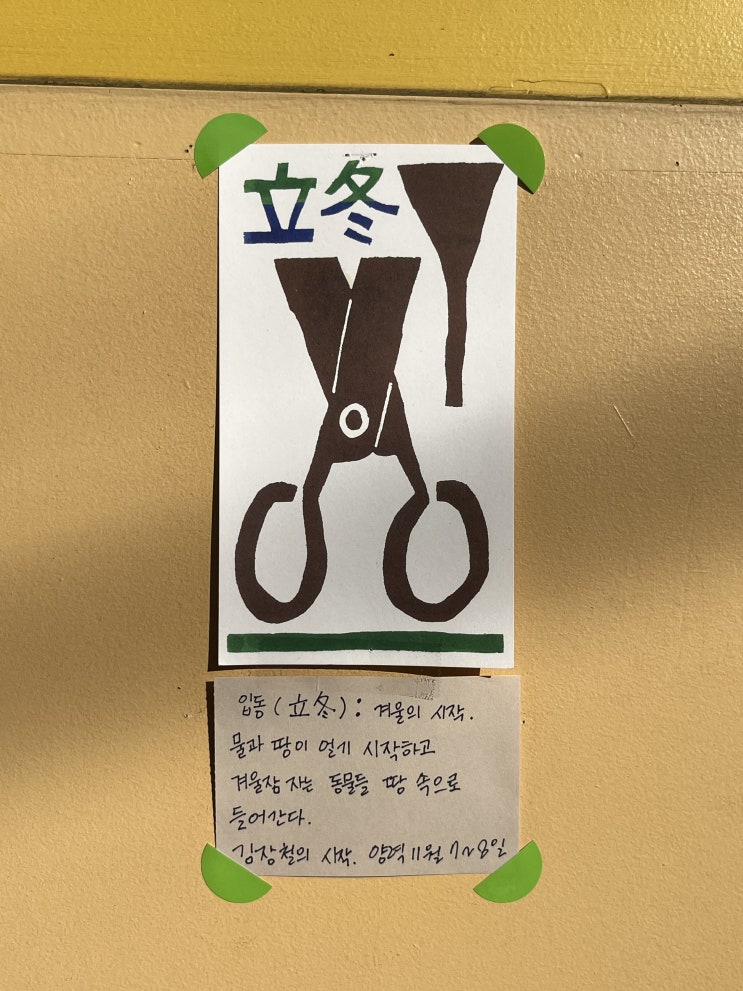 立冬
입동(立冬): 겨울의 시작.
물과 땅이 얼기 시작하고
겨울잠 자는 동물들 땅 속으로
들어간다.
김장철의 시작. 양력 11월 7~8일